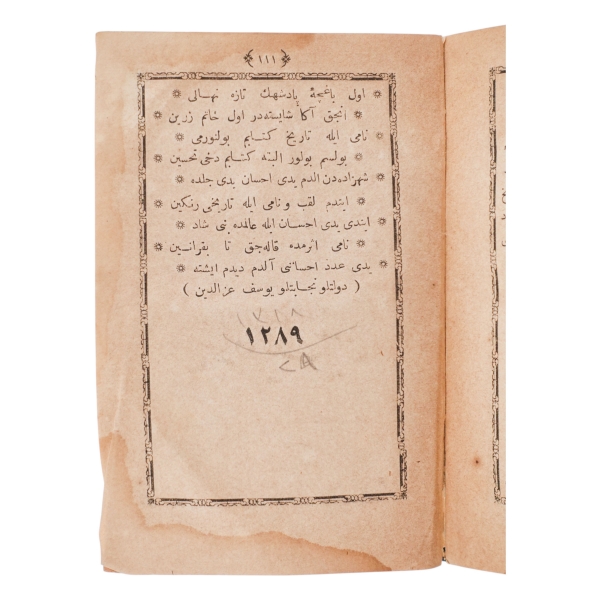 ١١١
اول باغچهٔ پادشهك تازه نهالی
انجق آكا شایسته در اول خاتم زرین
نامی ایله تاریخ كتابم بولنورمی
بولسم بولور البته كتابم دخی تحسین
شهزاده‌دن الدم یدی احسان یدی جلده
ایندم لقب و نامی ایله تاریخی رنكین
ایندی یدی احسان ایله عالمده بنی شاد
نامی اثرمده قاله‌جق تا بقرانسین
یدی عدد احسانی آلدم دیدم ایشته
( دولتلو نجابتلو یوسف عزالدین )
١٢٨٩